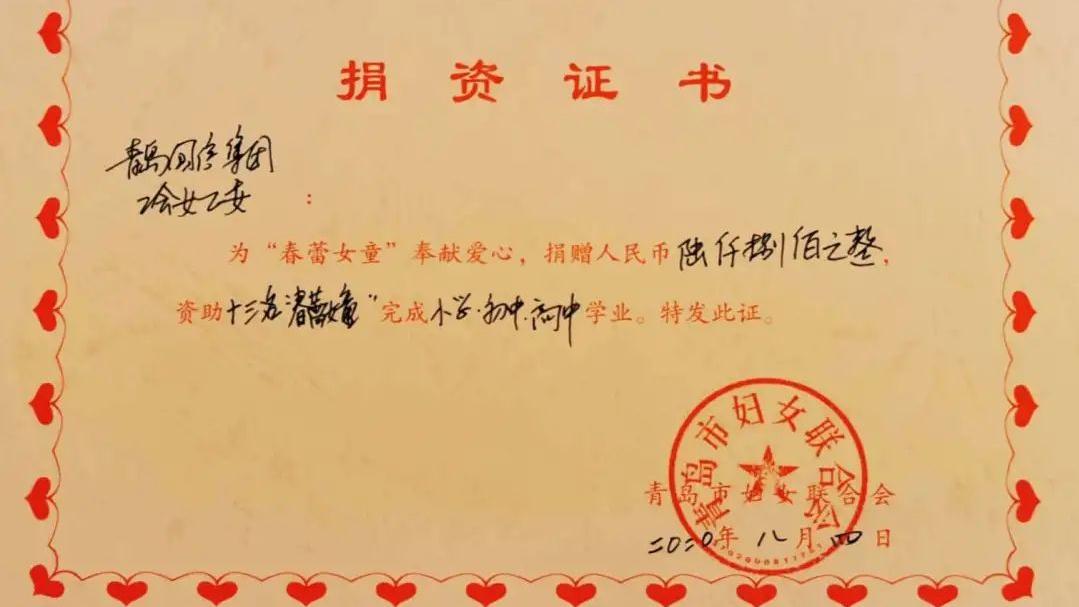 捐资证书
青岛国信集团
工会女工委：
为“春蕾女童”奉献爱心，捐赠人民币陆仟捌佰元整，
资助十三名“春蕾女童”完成小学.初中.高中学业。特发此证。
青岛市妇女联合会
青岛市妇女联合会
二0二0年八月四日